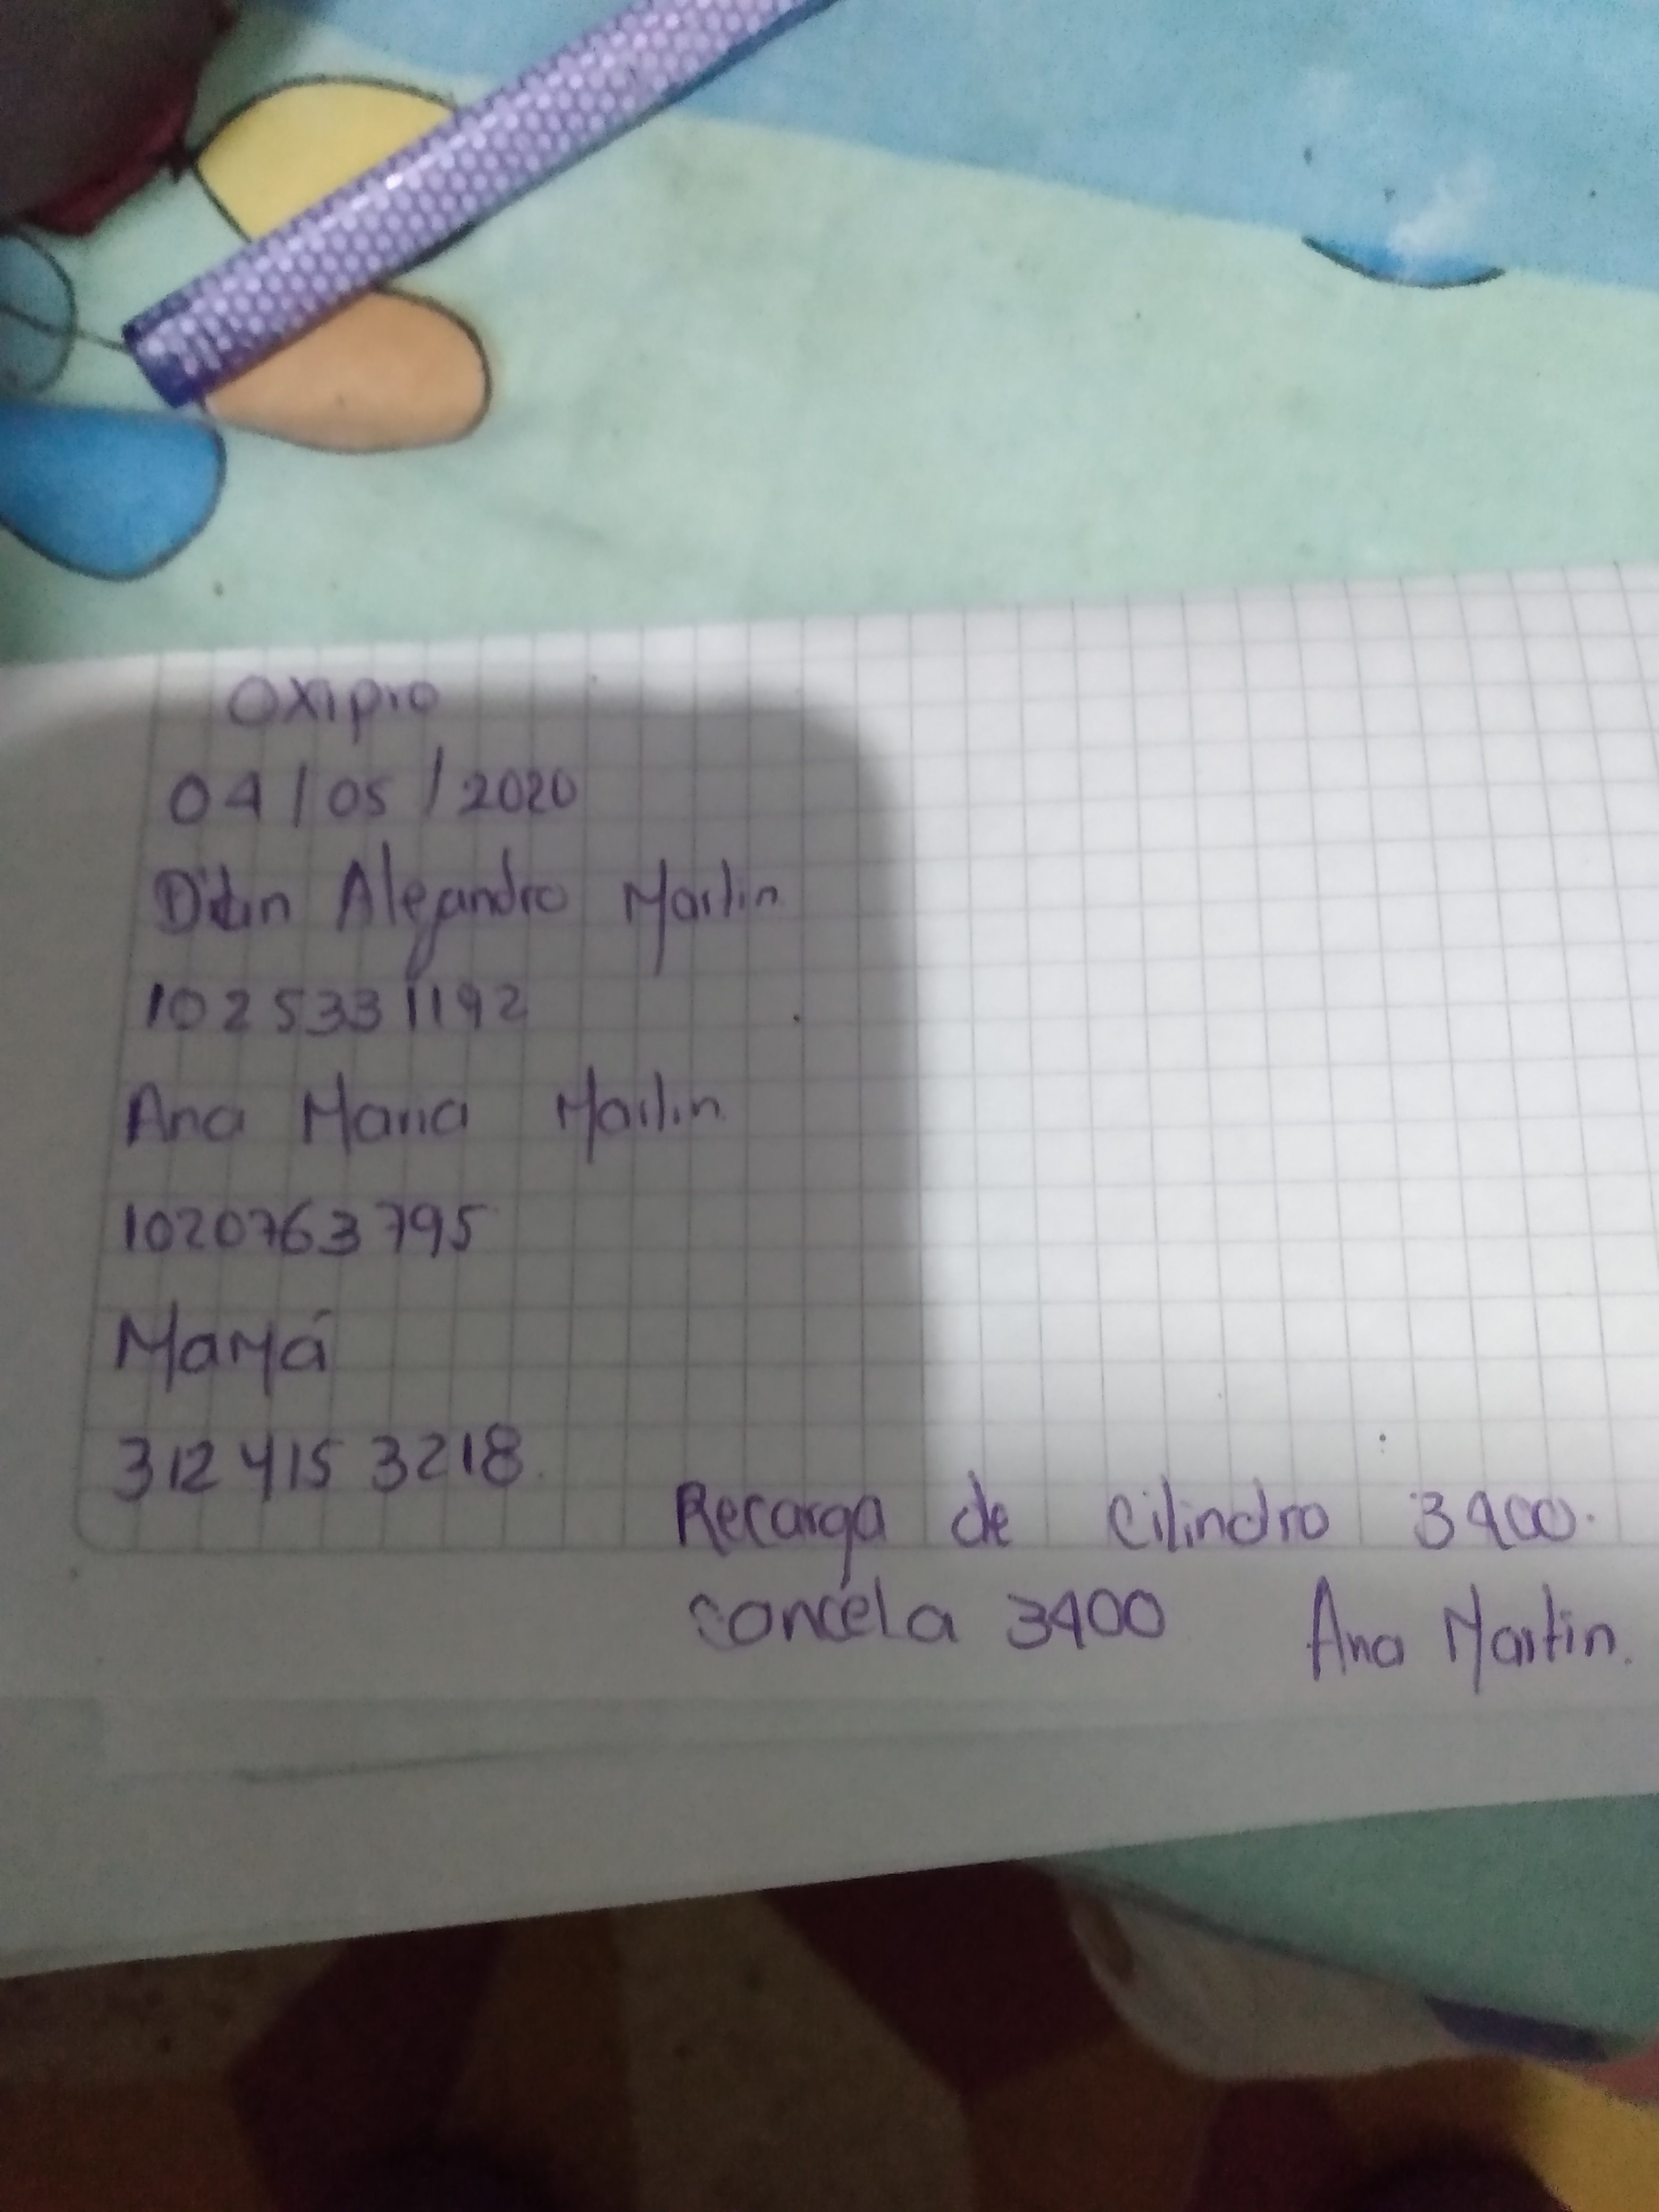 Oxipro
04/05/2020
Alejandro Martin
1025331192
Ana Maria Martin
1020763795
Mamá
312 415 3218
Recarga de cilindro 3400.
cancela 3400 Ana Martin.